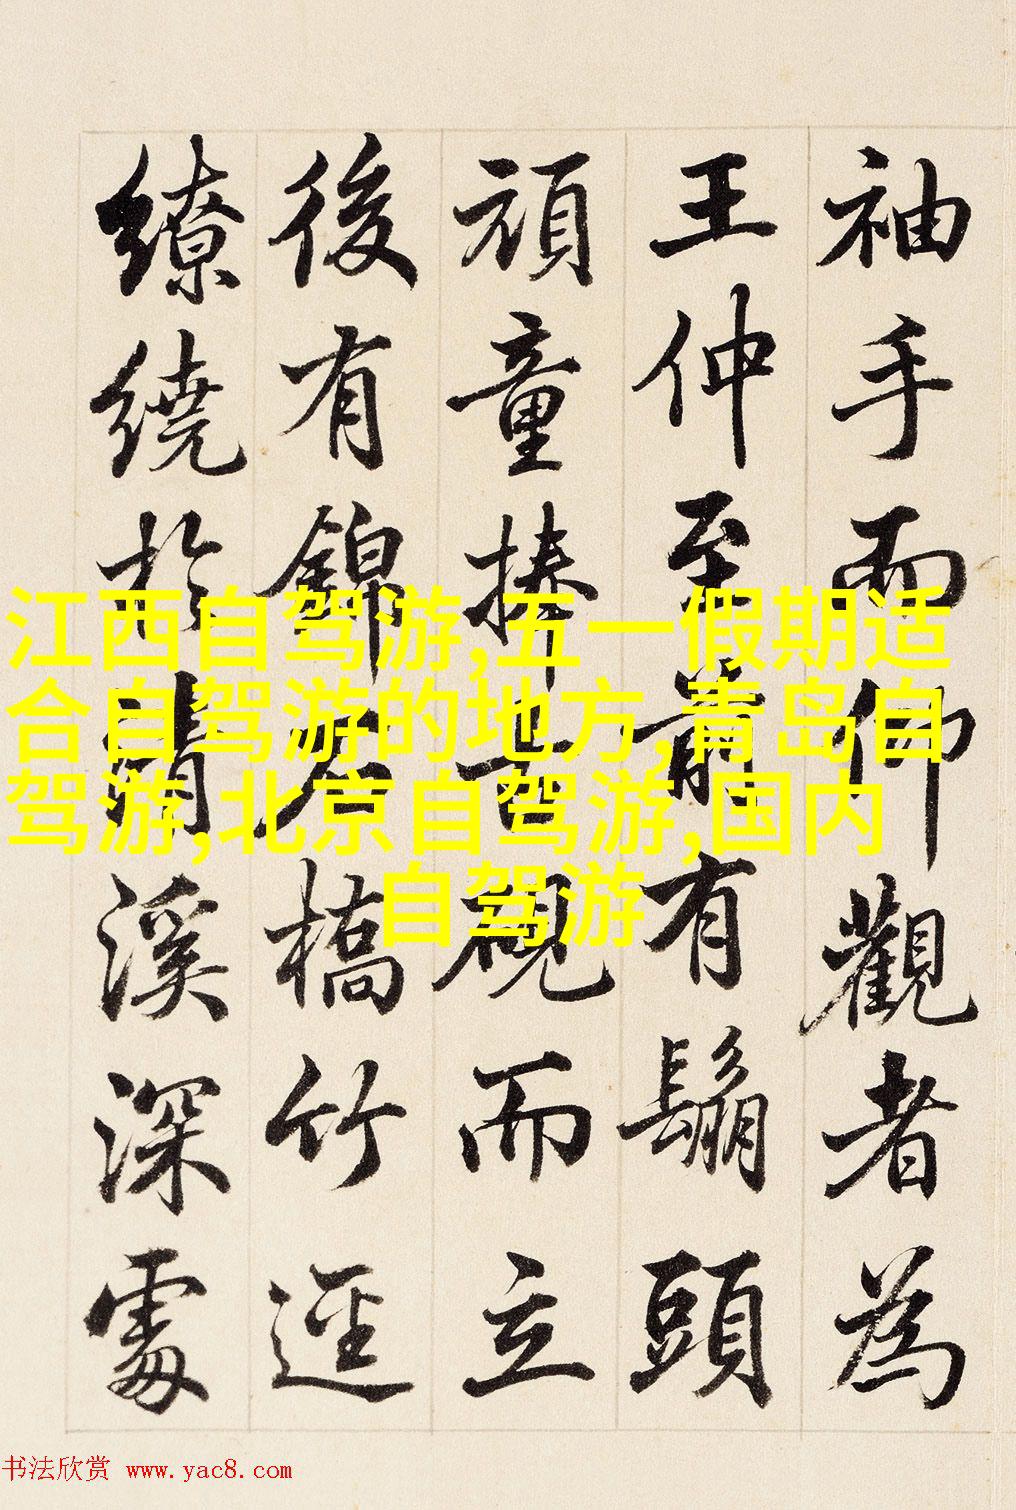 袖手而仰觀者為
王仲至前有鬅頭
頑童捧古硯而立
後有錦石橋竹逕
繚繞於清溪深處
江西自驾游,五一假期适
合自驾游的地方,青岛自
驾游,北京自驾游,国内
自驾游
书法欣赏 www.yac8.com